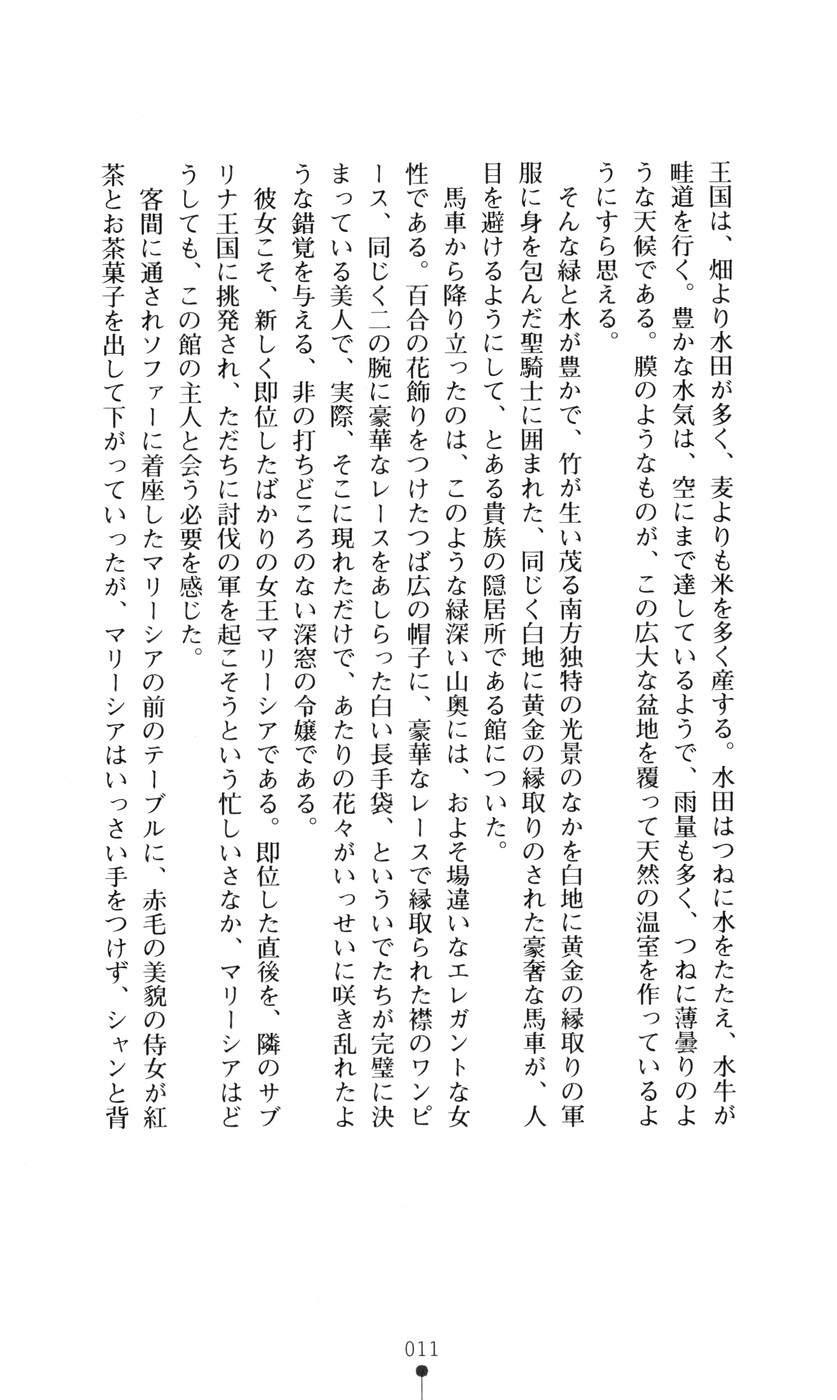 王国は、畑より水田が多く、麦よりも米を多く産する。水田はつねに水をたたえ、水牛が
畦道を行く。豊かな水気は、空にまで達しているようで、雨量も多く、つねに薄曇りのよ
うな天候である。膜のようなものが、この広大な盆地を覆って天然の温室を作っているよ
うにすら思える。
そんな緑と水が豊かで、竹が生い茂る南方独特の光景のなかを白地に黄金の縁取りの軍
服に身を包んだ聖騎士に囲まれた、同じく白地に黄金の縁取りのされた豪奢な馬車が、人
目を避けるようにして、とある貴族の隠居所である館についた。
馬車から降り立ったのは、このような緑深い山奥には、およそ場違いなエレガントな女
性である。百合の花飾りをつけたつば広の帽子に、豪華なレースで縁取られた襟のワンピ
ース、同じく二の腕に豪華なレースをあしらった白い長手袋、といういでたちが完璧に決
まっている美人で、実際、そこに現れただけで、あたりの花々がいっせいに咲き乱れたよ
うな錯覚を与える、非の打ちどころのない深窓の令嬢である。
彼女こそ、新しく即位したばかりの女王マリーシアである。即位した直後を、隣のサブ
リナ王国に挑発され、ただちに討伐の軍を起こそうという忙しいさなか、マリーシアはど
うしても、この館の主人と会う必要を感じた。
客間に通されソファーに着座したマリーシアの前のテーブルに、赤毛の美貌の侍女が紅
茶とお茶菓子を出して下がっていったが、マリーシアはいっさい手をつけず、シャンと背
011